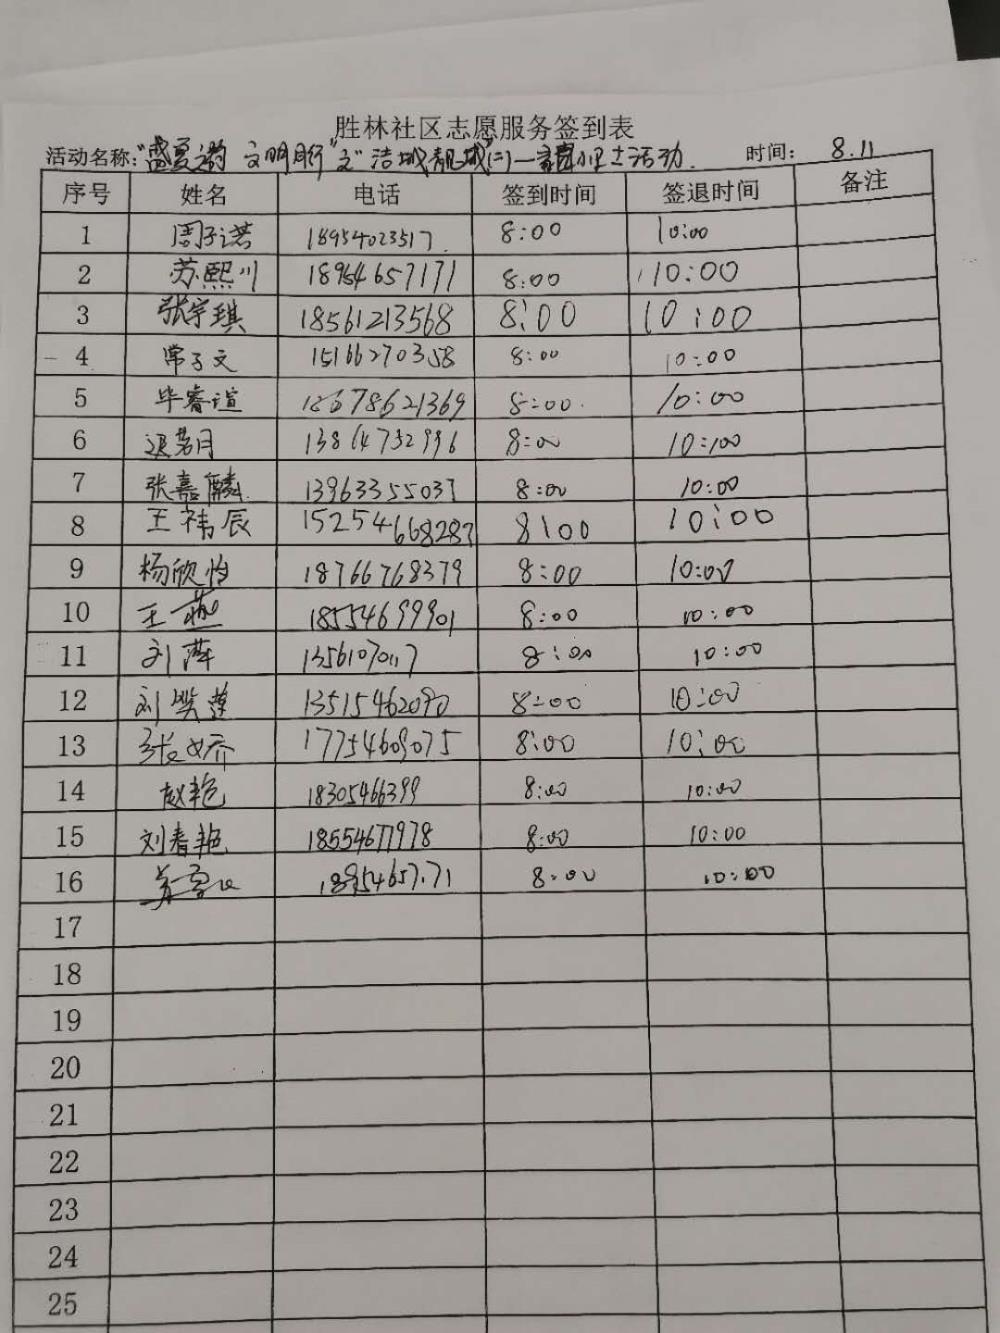 胜林社区志愿服务签到表
活动名称:"盛夏 文明 行"之"洁城靓城"(二)一 卫士活动. 时间: 8.11
序号 姓名 电话 签到时间 签退时间 备注
1 周子诺 18954023517 8:00 10:00
2 苏熙川 18954657171 8:00 10:00
3 张宇琪 18561213568 8:00 10:00
4 常子文 15166270358 8:00 10:00
5 毕睿谊 18678621369 8:00 10:00
6 若月 8:00 10:00
7 张嘉麟 13963355037 8:00 10:00
8 王祎辰 15254668287 8:00 10:00
9 杨欣怡 18766768379 8:00 10:00
10 王燕 18554699901 8:00 10:00
11 刘萍 8:00 10:00
12 刘 莲 13515462090 8:00 10:00
13 张女乔 17754609075 8:00 10:00
14 赵艳 18305466399 8:00 10:00
15 刘春艳 18554677978 8:00 10:00
16 8:00 10:00
17
18
19
20
21
22
23
24
25